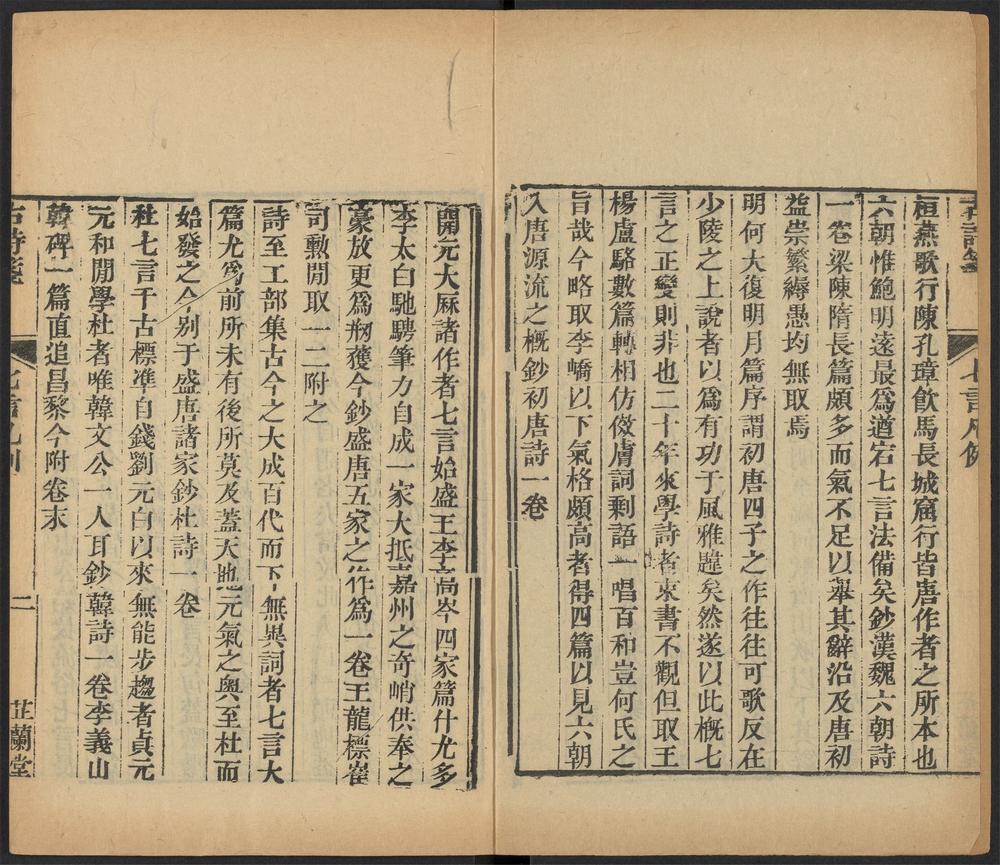 古詩箋
七言凡例
桓燕歌行陳孔璋飲馬長城窟行皆唐作者之所本也
六朝惟鮑明遠最為遒宕七言法備矣鈔漢魏六朝詩
一卷梁陳隋長篇頗多而氣不足以舉其辭沿及唐初
益崇繁縟愚均無取焉
明何大復明月篇序謂初唐四子之作往往可歌反在
少陵之上說者以為有功于風雅韙矣然遂以此概七
言之正變則非也二十年來學詩者束書不觀但取王
楊盧駱數篇轉相仿傚膚詞剩語一唱百和豈何氏之
旨哉今略取李嶠以下氣格頗高者得四篇以見六朝
入唐源流之概鈔初唐詩一卷
開元大厤諸作者七言始盛王李高岑四家篇什尤多
李太白馳騁筆力自成一家大抵嘉州之奇峭供奉之
豪放更為刱獲今鈔盛唐五家之作為一卷王龍標崔
司勲閒取一二附之
詩至工部集古今之大成百代而下無異詞者七言大
篇尤為前所未有後所莫及蓋天地元氣之奧至杜而
始發之今别于盛唐諸家鈔杜詩一卷
杜七言千古標准自錢劉元白以來無能步趨者貞元
元和閒學杜者唯韓文公一人耳鈔韓詩一卷李義山
韓碑一篇直追昌黎今附卷末
古詩箋
七言凡例
二
芷蘭堂